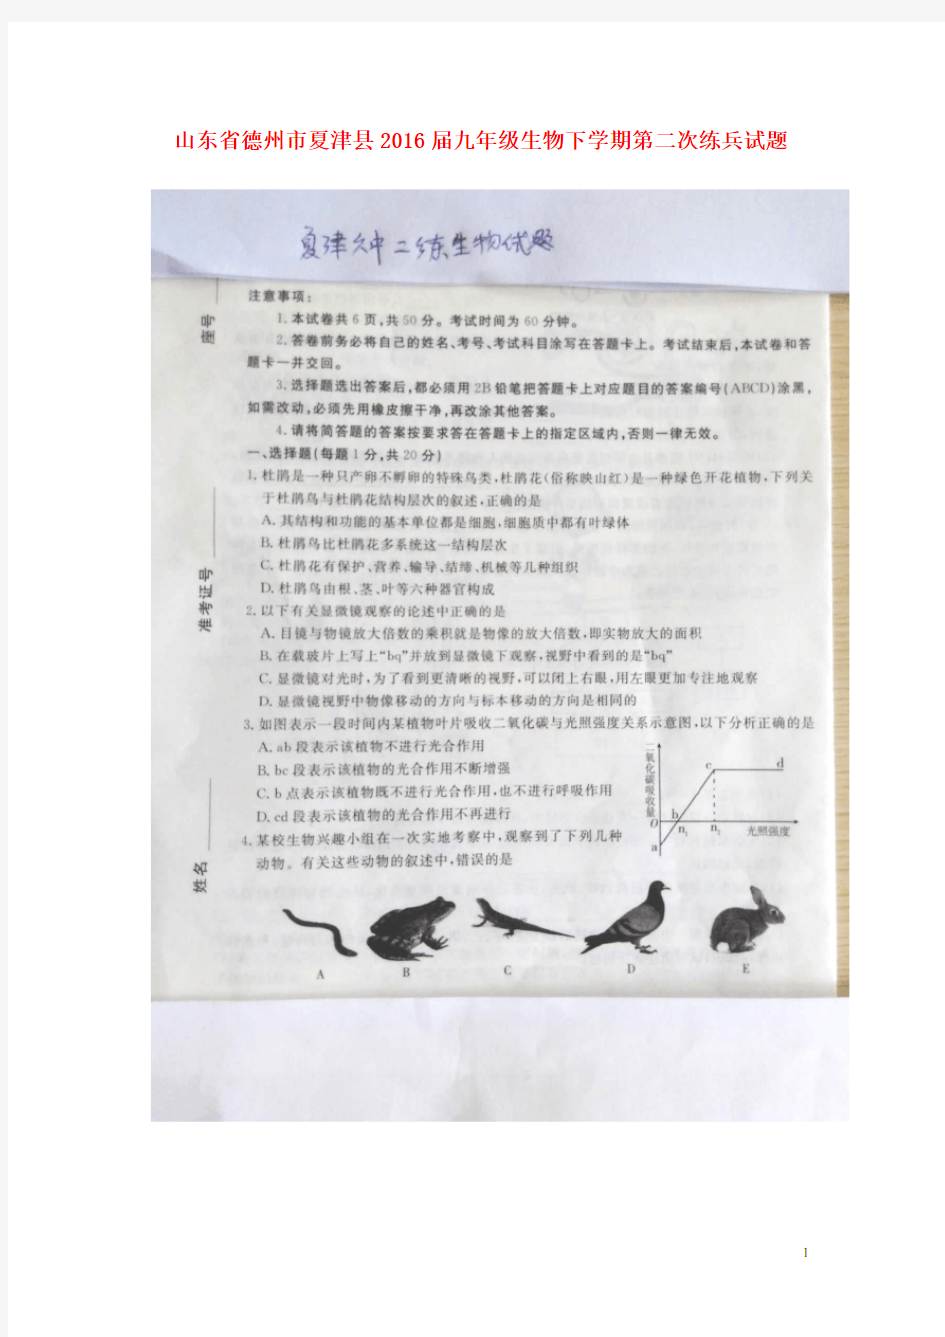 山东省德州市夏津县2016届九年级生物下学期第二次练兵试题
夏津六中二练生物试题
注意事项:
1.本试卷共6页,共50分。考试时间为60分钟。
2.答卷前务必将自己的姓名、考号、考试科目涂写在答题卡上。考试结束后,本试卷和答
题卡一并交回。
3.选择题选出答案后,都必须用2B铅笔把答题卡上对应题目的答案编号(ABCD)涂黑,
如需改动,必须先用橡皮擦干净,再改涂其他答案。
4.请将简答题的答案按要求答在答题卡上的指定区域内,否则一律无效。
一、选择题(每题1分,共20分)
1.杜鹃是一种只产卵不孵卵的特殊鸟类,杜鹃花(俗称映山红)是一种绿色开花植物,下列关
于杜鹃鸟与杜鹃花结构层次的叙述,正确的是
A.其结构和功能的基本单位都是细胞,细胞质中都有叶绿体
B.杜鹃鸟比杜鹃花多系统这一结构层次
C.杜鹃花有保护、营养、输导、结缔、机械等几种组织
D.杜鹃鸟由根、茎、叶等六种器官构成
2.以下有关显微镜观察的论述中正确的是
A.目镜与物镜放大倍数的乘积就是物像的放大倍数,即实物放大的面积
B.在载玻片上写上“bq”并放到显微镜下观察,视野中看到的是“bq”
C.显微镜对光时,为了看到更清晰的视野,可以闭上右眼,用左眼更加专注地观察
D.显微镜视野中物像移动的方向与标本移动的方向是相同的
3.如图表示一段时间内某植物叶片吸收二氧化碳与光照强度关系示意图,以下分析正确的是
A.ab段表示该植物不进行光合作用
B.bc段表示该植物的光合作用不断增强
C.b点表示该植物既不进行光合作用,也不进行呼吸作用
D.cd段表示该植物的光合作用不再进行
二氧化碳吸收量
c
d
b
O
n₁
n₂
光照强度
a
4.某校生物兴趣小组在一次实地考察中,观察到了下列几种
动物。有关这些动物的叙述中,错误的是
A
B
C
D
E
座号
准考证号
姓名
1